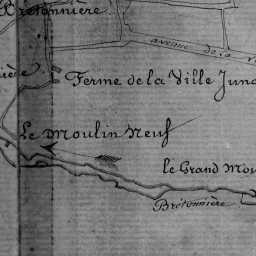 Bretonnière
avenue de la
ière
Ferme de la Ville
Le Moulin Neuf
le Grand
Bretonnière